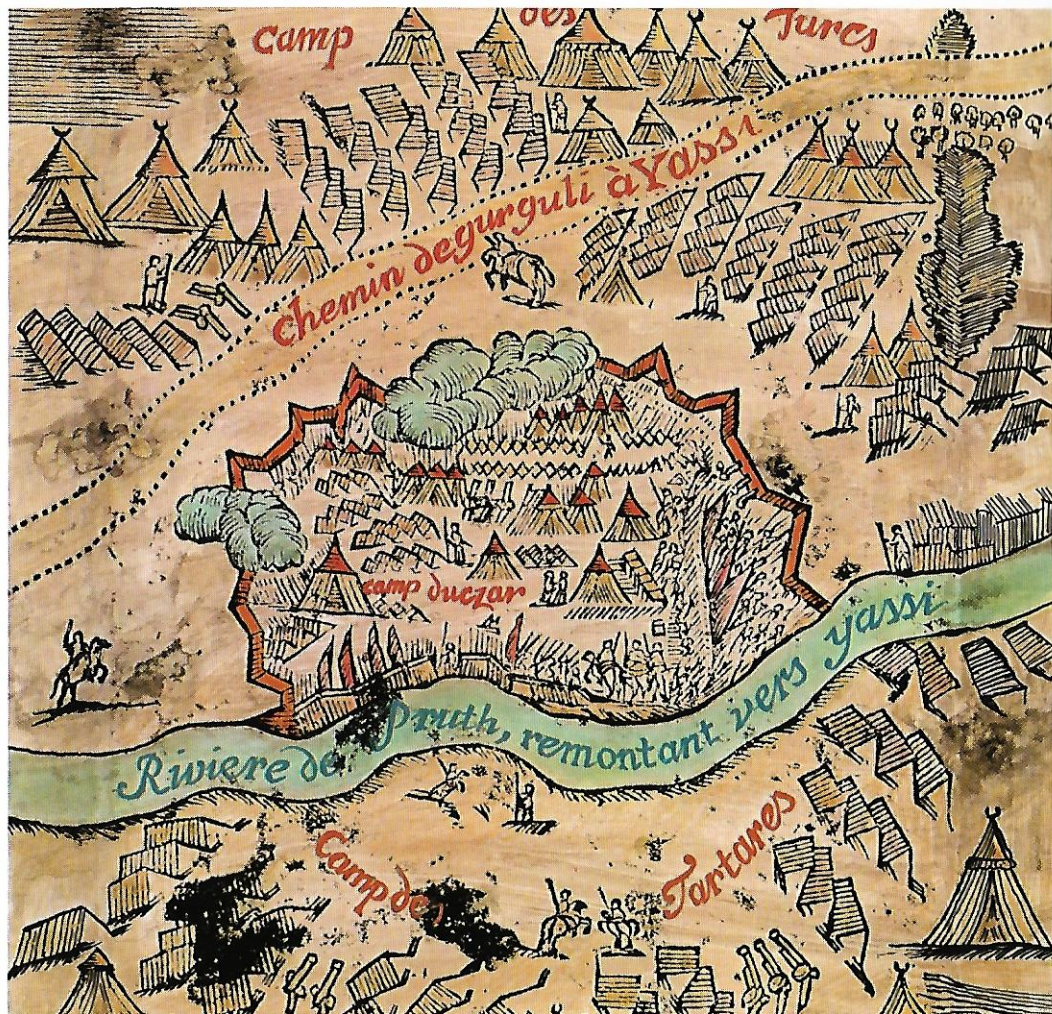 Camp des Turcs
chemin de gurguli à Yassi
camp du czar
Riviere de Pruth, remontant vers yassi
Camp des Tartares